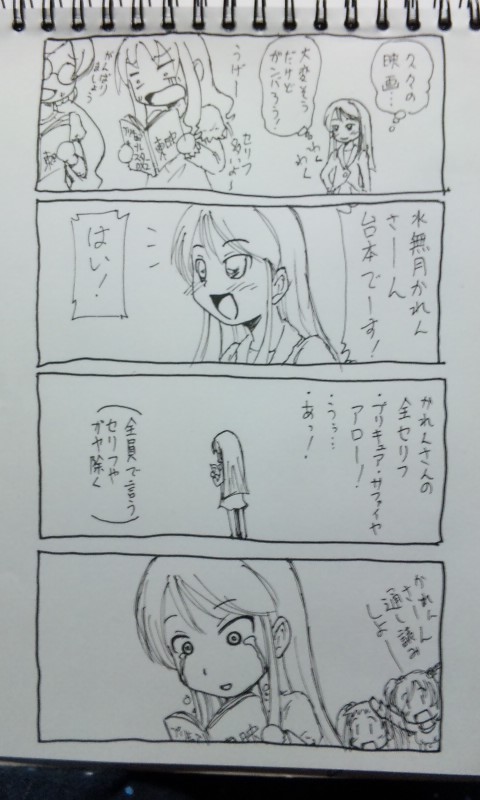 久々の
映画…
大変そう
だけど
ガンバろう!
わく
わく
うげー
セリフ
おいよ〜
がんばり
ましょう
東映
水無月かれん
さーん
台本でーす!
はい!
かれんさんの
全セリフ
・プリキュア・サファイヤ
アロー!
・うぅ…
・あっ!
(全員で言う
セリフや
ガヤ除く)
かれん
さーん
通し読み
しよー